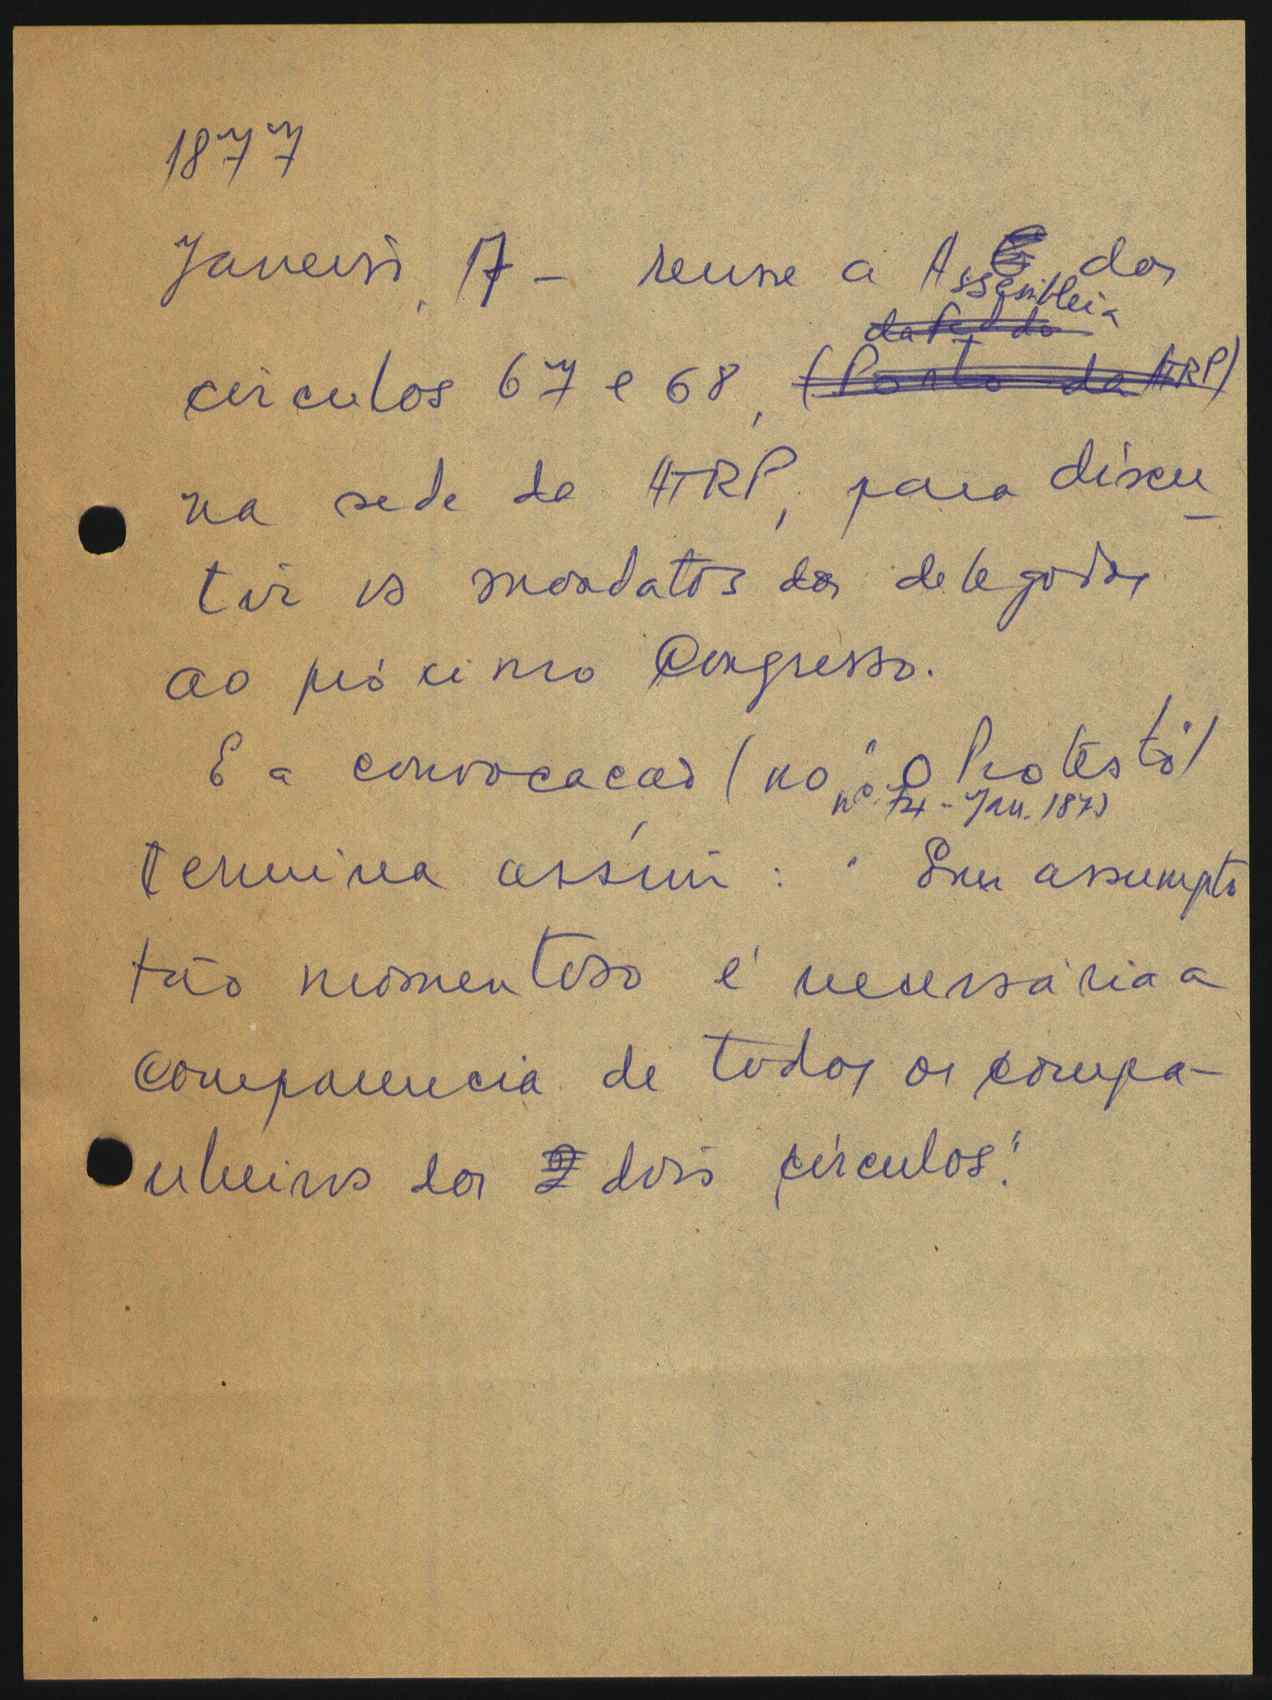 1877
Janeiro, 17 - reune a Assembleia dos
da Fed. do
circulos 67 e 68, (Porto da ATRP)
na sede da ATRP, para discu-
tir os mandatos dos delegados
ao próximo Congresso.
E a convocação (no "O Protesto"
nº 74 - Jan. 1877)
termina assim: "Em assumpto
tão momentoso é necessária a
comparencia de todos os compa-
nheiros dos 2 dois circulos."